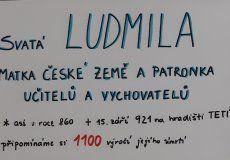 SVATÁ LUDMILA
MATKA ČESKÉ ZEMĚ A PATRONKA
UČITELŮ A VYCHOVATELŮ
* asi v roce 860 + 15. září 921 na hradišti TETÍ
připomínáme si 1100 výročí jejího